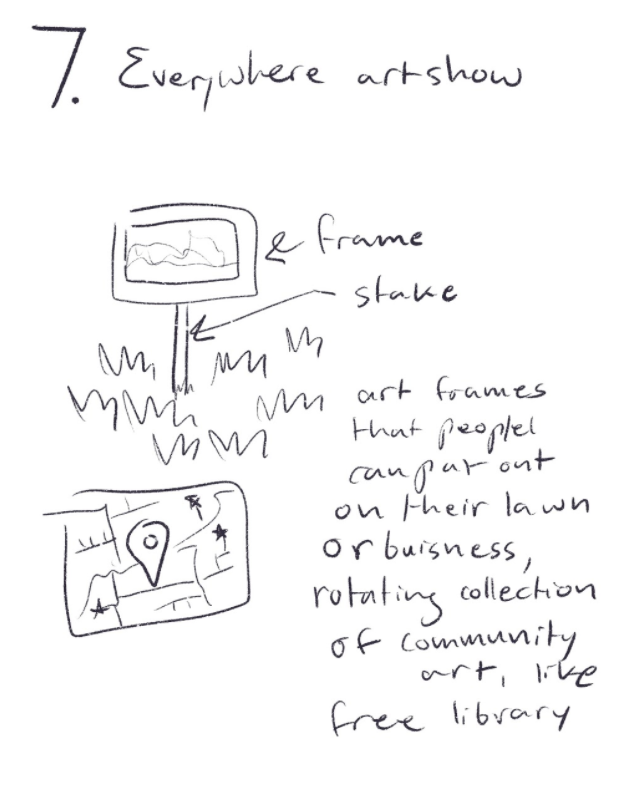 7. Everywhere artshow
frame
stake
art frames
that peoplel
can put out
on their lawn
or buisness,
rotating collection
of community
art, like
free library